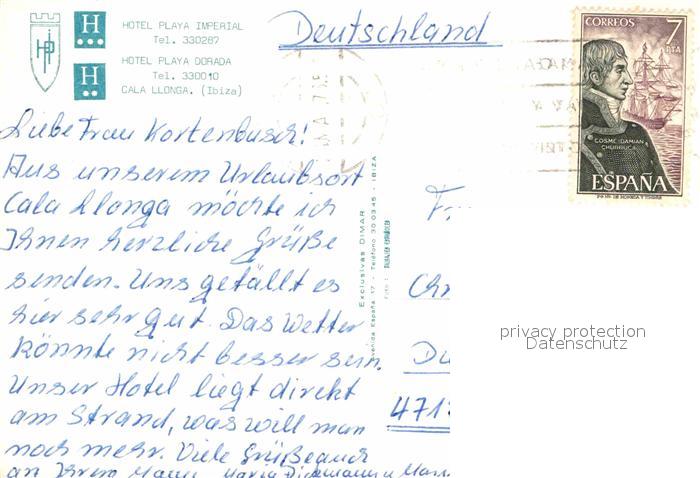 HOTEL PLAYA IMPERIAL
Tel. 330287
HOTEL PLAYA DORADA
Tel. 330010
CALA LLONGA. (Ibiza)
H
H
Deutschland
CORREOS 7
PTA
COSME DAMIAN
CHURRUCA
ESPAÑA
Liebe Frau Kortenbusch!
Aus unserem Urlaubsort
Cala Llonga möchte ich
Ihnen herzliche Grüße
senden. Uns gefällt es
hier sehr gut. Das Wetter
könnte nicht besser sein.
Unser Hotel liegt direkt
am Strand, was will man
noch mehr. Viele Grüße auch
an Ihren Mann, Maria
Exclusivas DIMAR
Avenida España 17 - Teléfono 30 03 45 - IBIZA
F
Chr
Du
471
privacy protection
Datenschutz